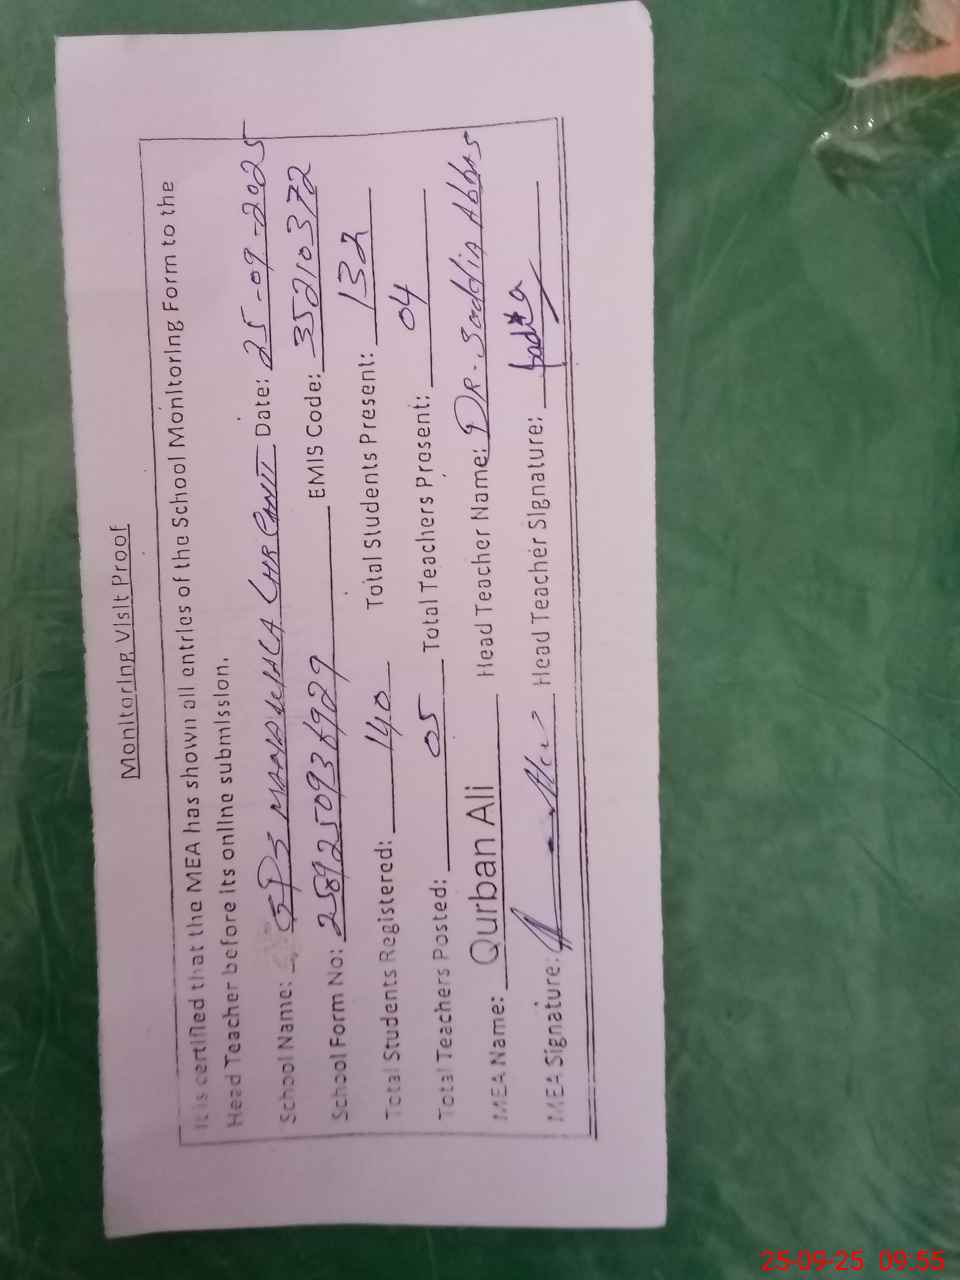 Monitoring Visit Proof
It is certified that the MEA has shown all entries of the School Monitoring Form to the
Head Teacher before its online submission.
School Name: GPS LHR CANTT Date: 25-09-2025
School Form No: 2589250936929 EMIS Code: 35210372
Total Students Registered: 140 Total Students Present: 132
Total Teachers Posted: 05 Total Teachers Present: 04
MEA Name: Qurban Ali Head Teacher Name: DR. Saddia Abbas
MEA Signature: Head Teacher Signature:
25-09-25 09:55